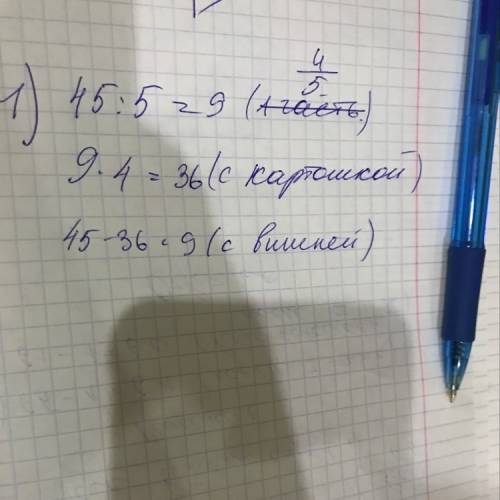 4/5
1) 45:5=9 (1 часть)
9·4=36 (с картошкой)
45-36=9 (с вишней)